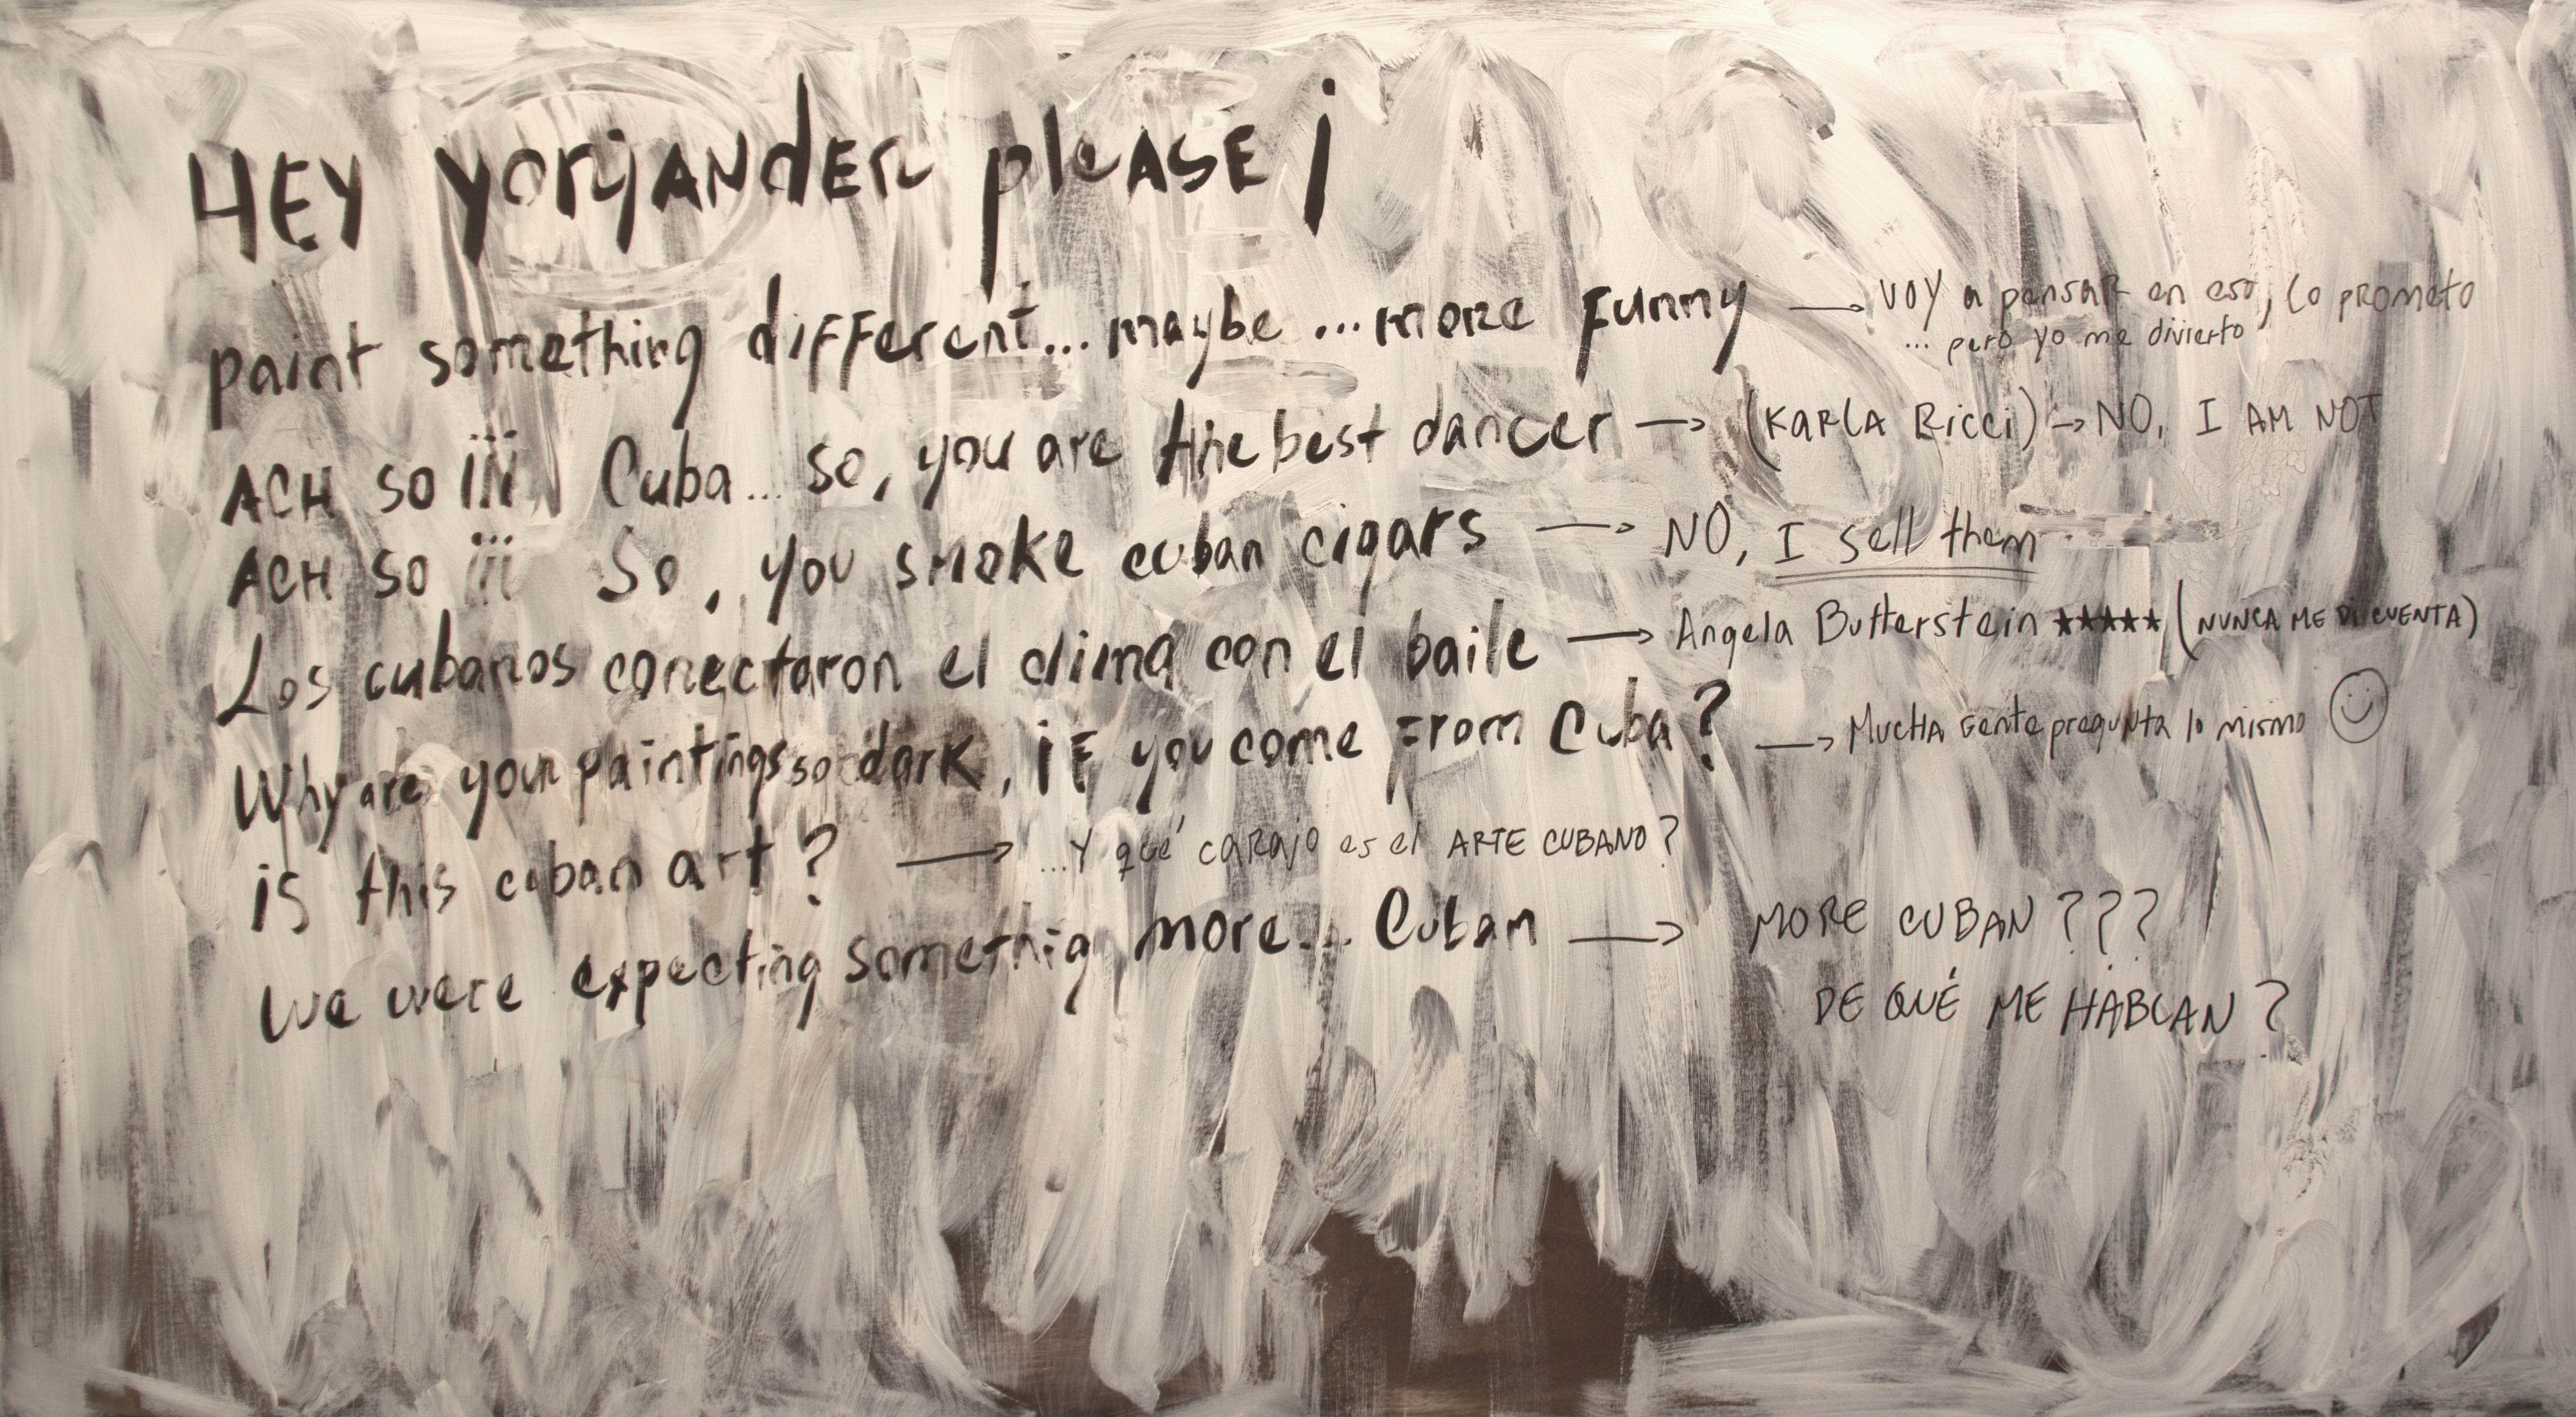 HEY yorjander please ¡
paint something different... maybe ... more funny → voy a pensar en eso, lo prometo
... pero yo me divierto
ACH so ¡¡¡ Cuba... so, you are the best dancer → (KARLA Ricci) → NO, I AM NOT
ACH so ¡¡¡ So, you smoke cuban cigars → NO, I sell them
Los cubanos conectaron el clima con el baile → Angela Butterstein ★★★★★ (NUNCA ME DI CUENTA)
Why are your paintings so dark, if you come from Cuba? → Mucha gente pregunta lo mismo ☺
is this cuban art? → ...Y qué carajo es el ARTE CUBANO?
We were expecting somethig more... Cuban → MORE CUBAN???
DE QUÉ ME HABLAN?